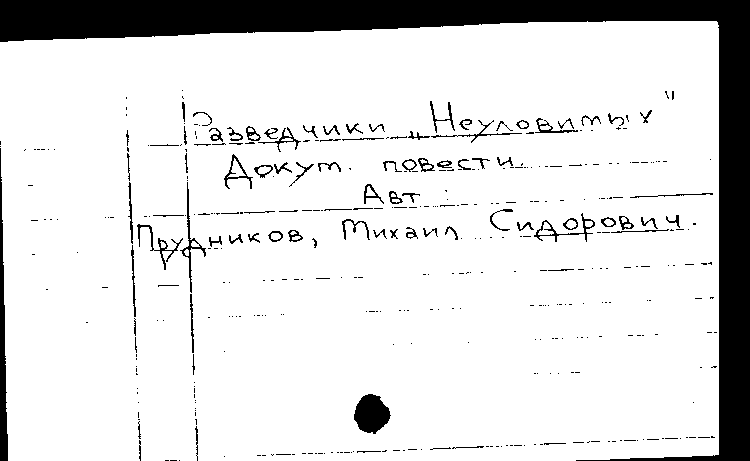 Разведчики „Неуловимых"
Докум. повести.
Авт :
Прудников, Михаил Сидорович.